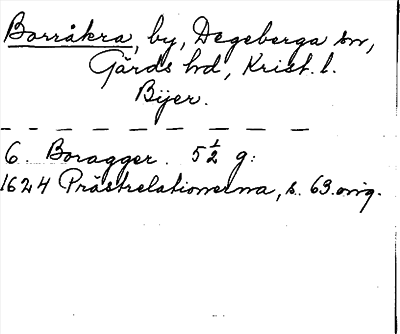 Borråkra, by, Degeberga sn,
Gärds hd, Krist. l.
Bijer.
6. Boragger. 5½ g:
1624 Prästrelationerna, s. 63. orig.